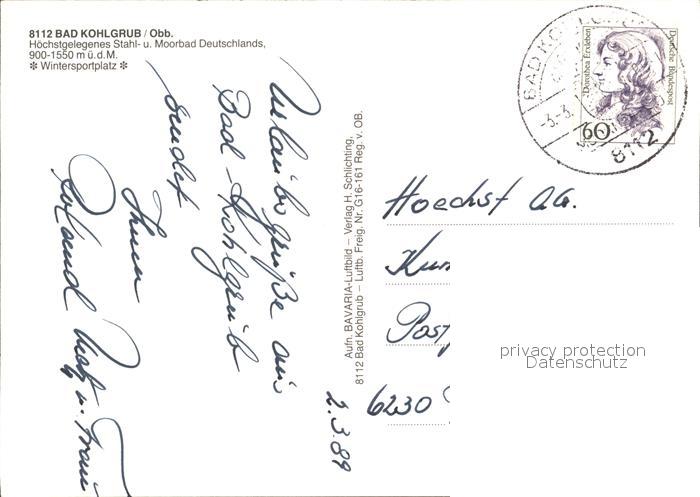 8112 BAD KOHLGRUB / Obb.
Höchstgelegenes Stahl- u. Moorbad Deutschlands,
900-1550 m ü.d.M.
✻ Wintersportplatz ✻
Urlaubsgrüße aus
Bad-Kohlgrub
sendet
Ihnen
Roland u. Frau
2.3.89
Aufn. BAVARIA-Luftbild – Verlag H. Schlichting,
8112 Bad Kohlgrub – Luftb. Freig. Nr. G16-161 Reg. v. OB.
BAD KOHLGRUB
-3.-3.
8112
Dorothea Erxleben
Deutsche Bundespost
60
Hoechst AG.
Kun
Post
6230
privacy protection
Datenschutz